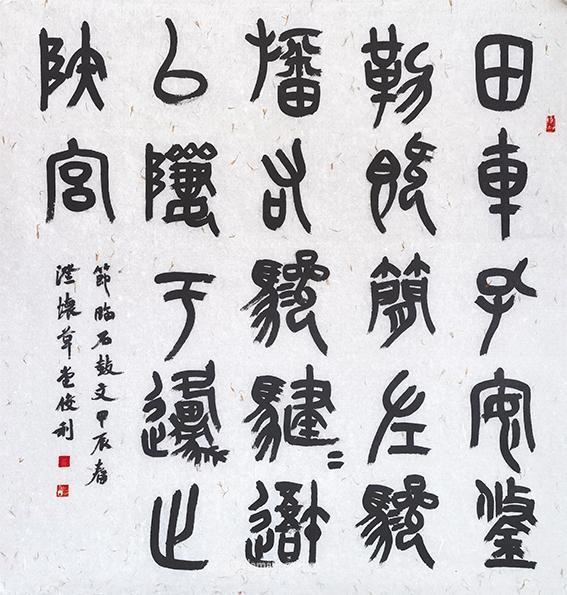 田車孔安鋚
勒既簡左驂
旛右驂騝=
以隮于邍止
陝宮
節臨石鼓文甲辰春
澄懷草堂俊利